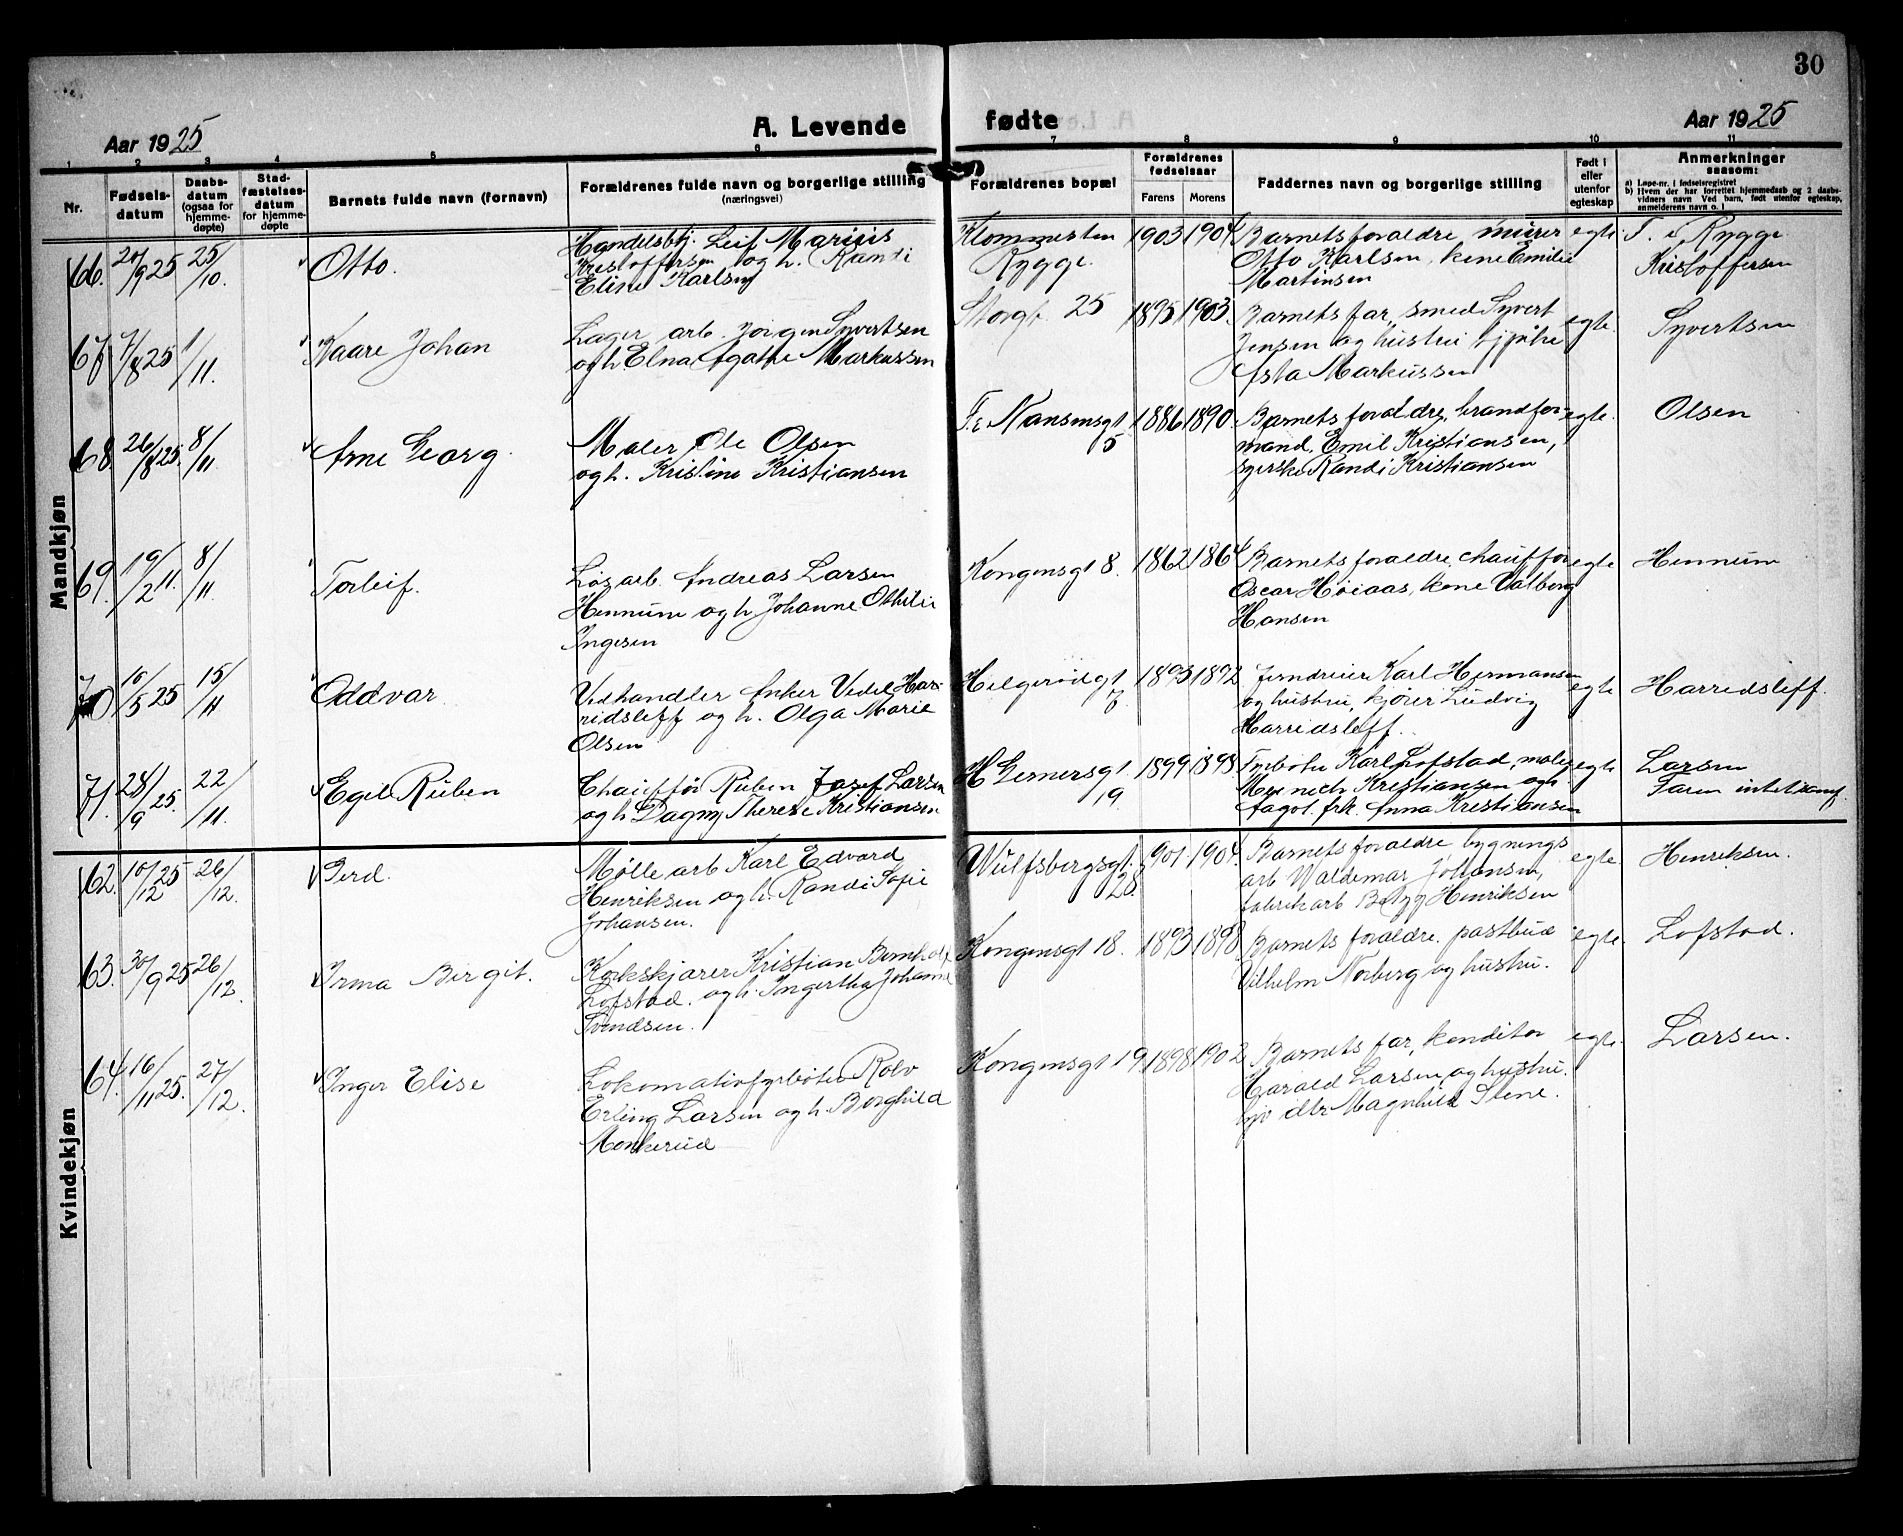 30
Aar 1925
A. Levende
fødte
Aar 1925
1 2 3 4 5 6 7 8 9 10 11
Nr.
Fødsels-
datum
Daabs-
datum
(ogsaa for
hjemme-
døpte)
Stad-
fæstelses-
datum
for hjemme-
døpte
Barnets fulde navn (fornavn)
Forældrenes fulde navn og borgerlige stilling
(næringsvei)
Forældrenes bopæl
Forældrenes
fødselsaar
Farens Morens
Faddernes navn og borgerlige stilling
Født i
eller
utenfor
egteskap
Anmerkninger
saasom:
a) Løpe-nr. i fødselsregistret
b) Hvem der har forrettet hjemmedaab og 2 daabs-
vidners navn Ved barn, født utenfor egteskap,
anmelderens navn o. l
Mandkjøn
66. 20/9 25 25/10. Otto.
Handelsbtj. Leif Marius
Kristoffersen og h. Randi
Eline Karlsen
Klommesten
Rygge.
1903 1904
Barnets foraldre, murer
Otto Karlsen, kone Emilie
Martinsen
egte
F. i Rygge
Kristoffersen
67 7/8 25 1/11. Kaare Johan
Lager arb. Jørgen Syvertsen
og h. Elna Agathe Markussen
Storgt 25
1895 1903.
Barnets far, smed Syvert
Jensen og hustru
Asta Markussen
egte.
Syvertsen
68 26/8 25. 8/11 Arne Georg.
Maler Ole Olsen
og h. Kristine Kristiansen
Fr Nansensgt
5
1886 1890
Barnets foraldre, brandfor-
mand, Emil Kristiansen,
syerske Randi Kristiansen
egte.
Olsen
69. 19/2 11. 8/11 Torleif.
Løsarb. Andreas Larsen
Hennum og h. Johanne Othilie
Ingesen
Kongensgt 8.
1862 1864
Barnets foraldre, chauffør
Oscar Høiaas, kone Valborg
Hansen
egte
Hennum
70 10/5 25 15/11 Oddvar
Vedhandler Anker Vedel Har-
ridsleff og h. Olga Marie
Olsen
Helgerødgt
7.
1893 1892
Jerndreier Karl Hermansen
og hustru, kjører Ludvig
Harridsleff.
egte
Harridsleff.
71. 28/9 25. 22/11. Egil Ruben
Chauffør Ruben Josef Larsen
og h Dagny Therese Kristiansen
H Gernersgt
19.
1899 1898
Fyrbøter Karl Lofstad, maler
Meinich Kristiansen og
fagot. frk. Anna Kristiansen
egte
Larsen
Faren intet samf.
Kvindekjøn
62. 10/12 25 26/12. Gerd.
Mølle arb Karl Edvard
Henriksen og h. Randi Sofie
Johansen.
Wulfsbergsgt.
28
1901. 1904.
Barnets foraldre bygnings
arb Waldemar Johansen,
fabrikarb Betzy Henriksen
egte
Henriksen.
63. 30/9 25 26/12. Irma Birgit.
Korkskjærer Kristian Bernhof
Lofstad. og h. Ingertha Johanne
Svendsen.
Kongensgt 18.
1893 1898
Barnets foraldre. postbud
Vilhelm Norberg og hustru.
egte.
Lofstad.
64. 16/11 25. 27/12. Inger Elise
Lokomotivfyrbøter Rolv
Erling Larsen og h. Borghild
Monkerud
Kongensgt 19
1898 1902
Barnets far, konditor
Harald Larsen og hustru.
Magnhild Stene.
egte.
Larsen.